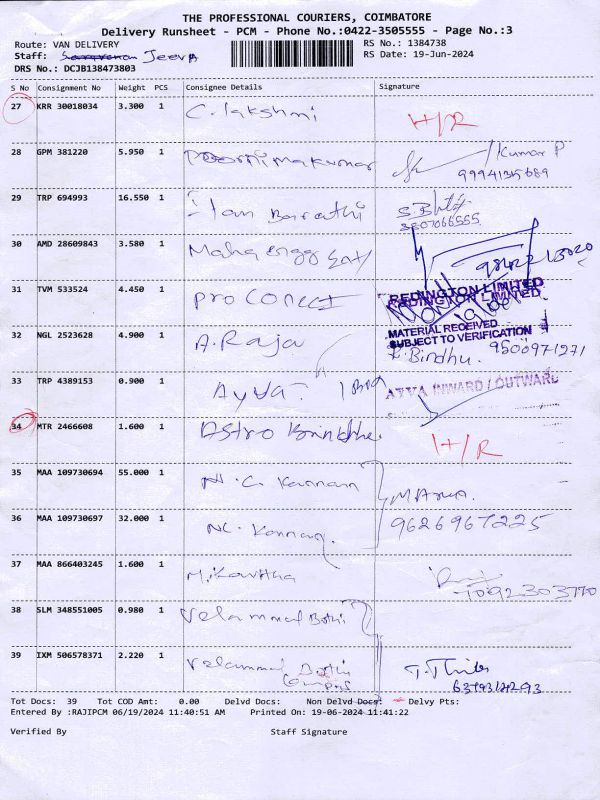 THE PROFESSIONAL COURIERS, COIMBATORE
Delivery Runsheet - PCM - Phone No.:0422-3505555 - Page No.:3
Route: VAN DELIVERY RS No.: 1384738
Staff: Jeeva RS Date: 19-Jun-2024
DRS No.: DCJB138473803
S No Consignment No Weight PCS Consignee Details Signature
27 KRR 30018034 3.300 1 C. lakshmi H/R
28 GPM 381220 5.950 1 Poornimakumar /Kumar P
29 TRP 694993 16.550 1 Barathi
30 AMD 28609843 3.580 1 Maha engg
31 TVM 533524 4.450 1 pro conect REDINGTON LIMITED
MATERIAL RECEIVED
SUBJECT TO VERIFICATION
32 NGL 2523628 4.900 1 A. Raja Bindhu. 9500971271
33 TRP 4389153 0.900 1 Ayya. AYYA INWARD / OUTWARD
34 MTR 2466608 1.600 1 Astro H/R
35 MAA 109730694 55.000 1 N. C. Kannan
36 MAA 109730697 32.000 1 NC. Kannan 9626967225
37 MAA 866403245 1.600 1 M. Kavitha
38 SLM 348551005 0.980 1 Velammal Bothi
39 IXM 506578371 2.220 1 Velammal Bothi
Campus
Tot Docs: 39 Tot COD Amt: 0.00 Delvd Docs: Non Delvd Docs: Delvy Pts:
Entered By :RAJIPCM 06/19/2024 11:40:51 AM Printed On: 19-06-2024 11:41:22
Verified By Staff Signature